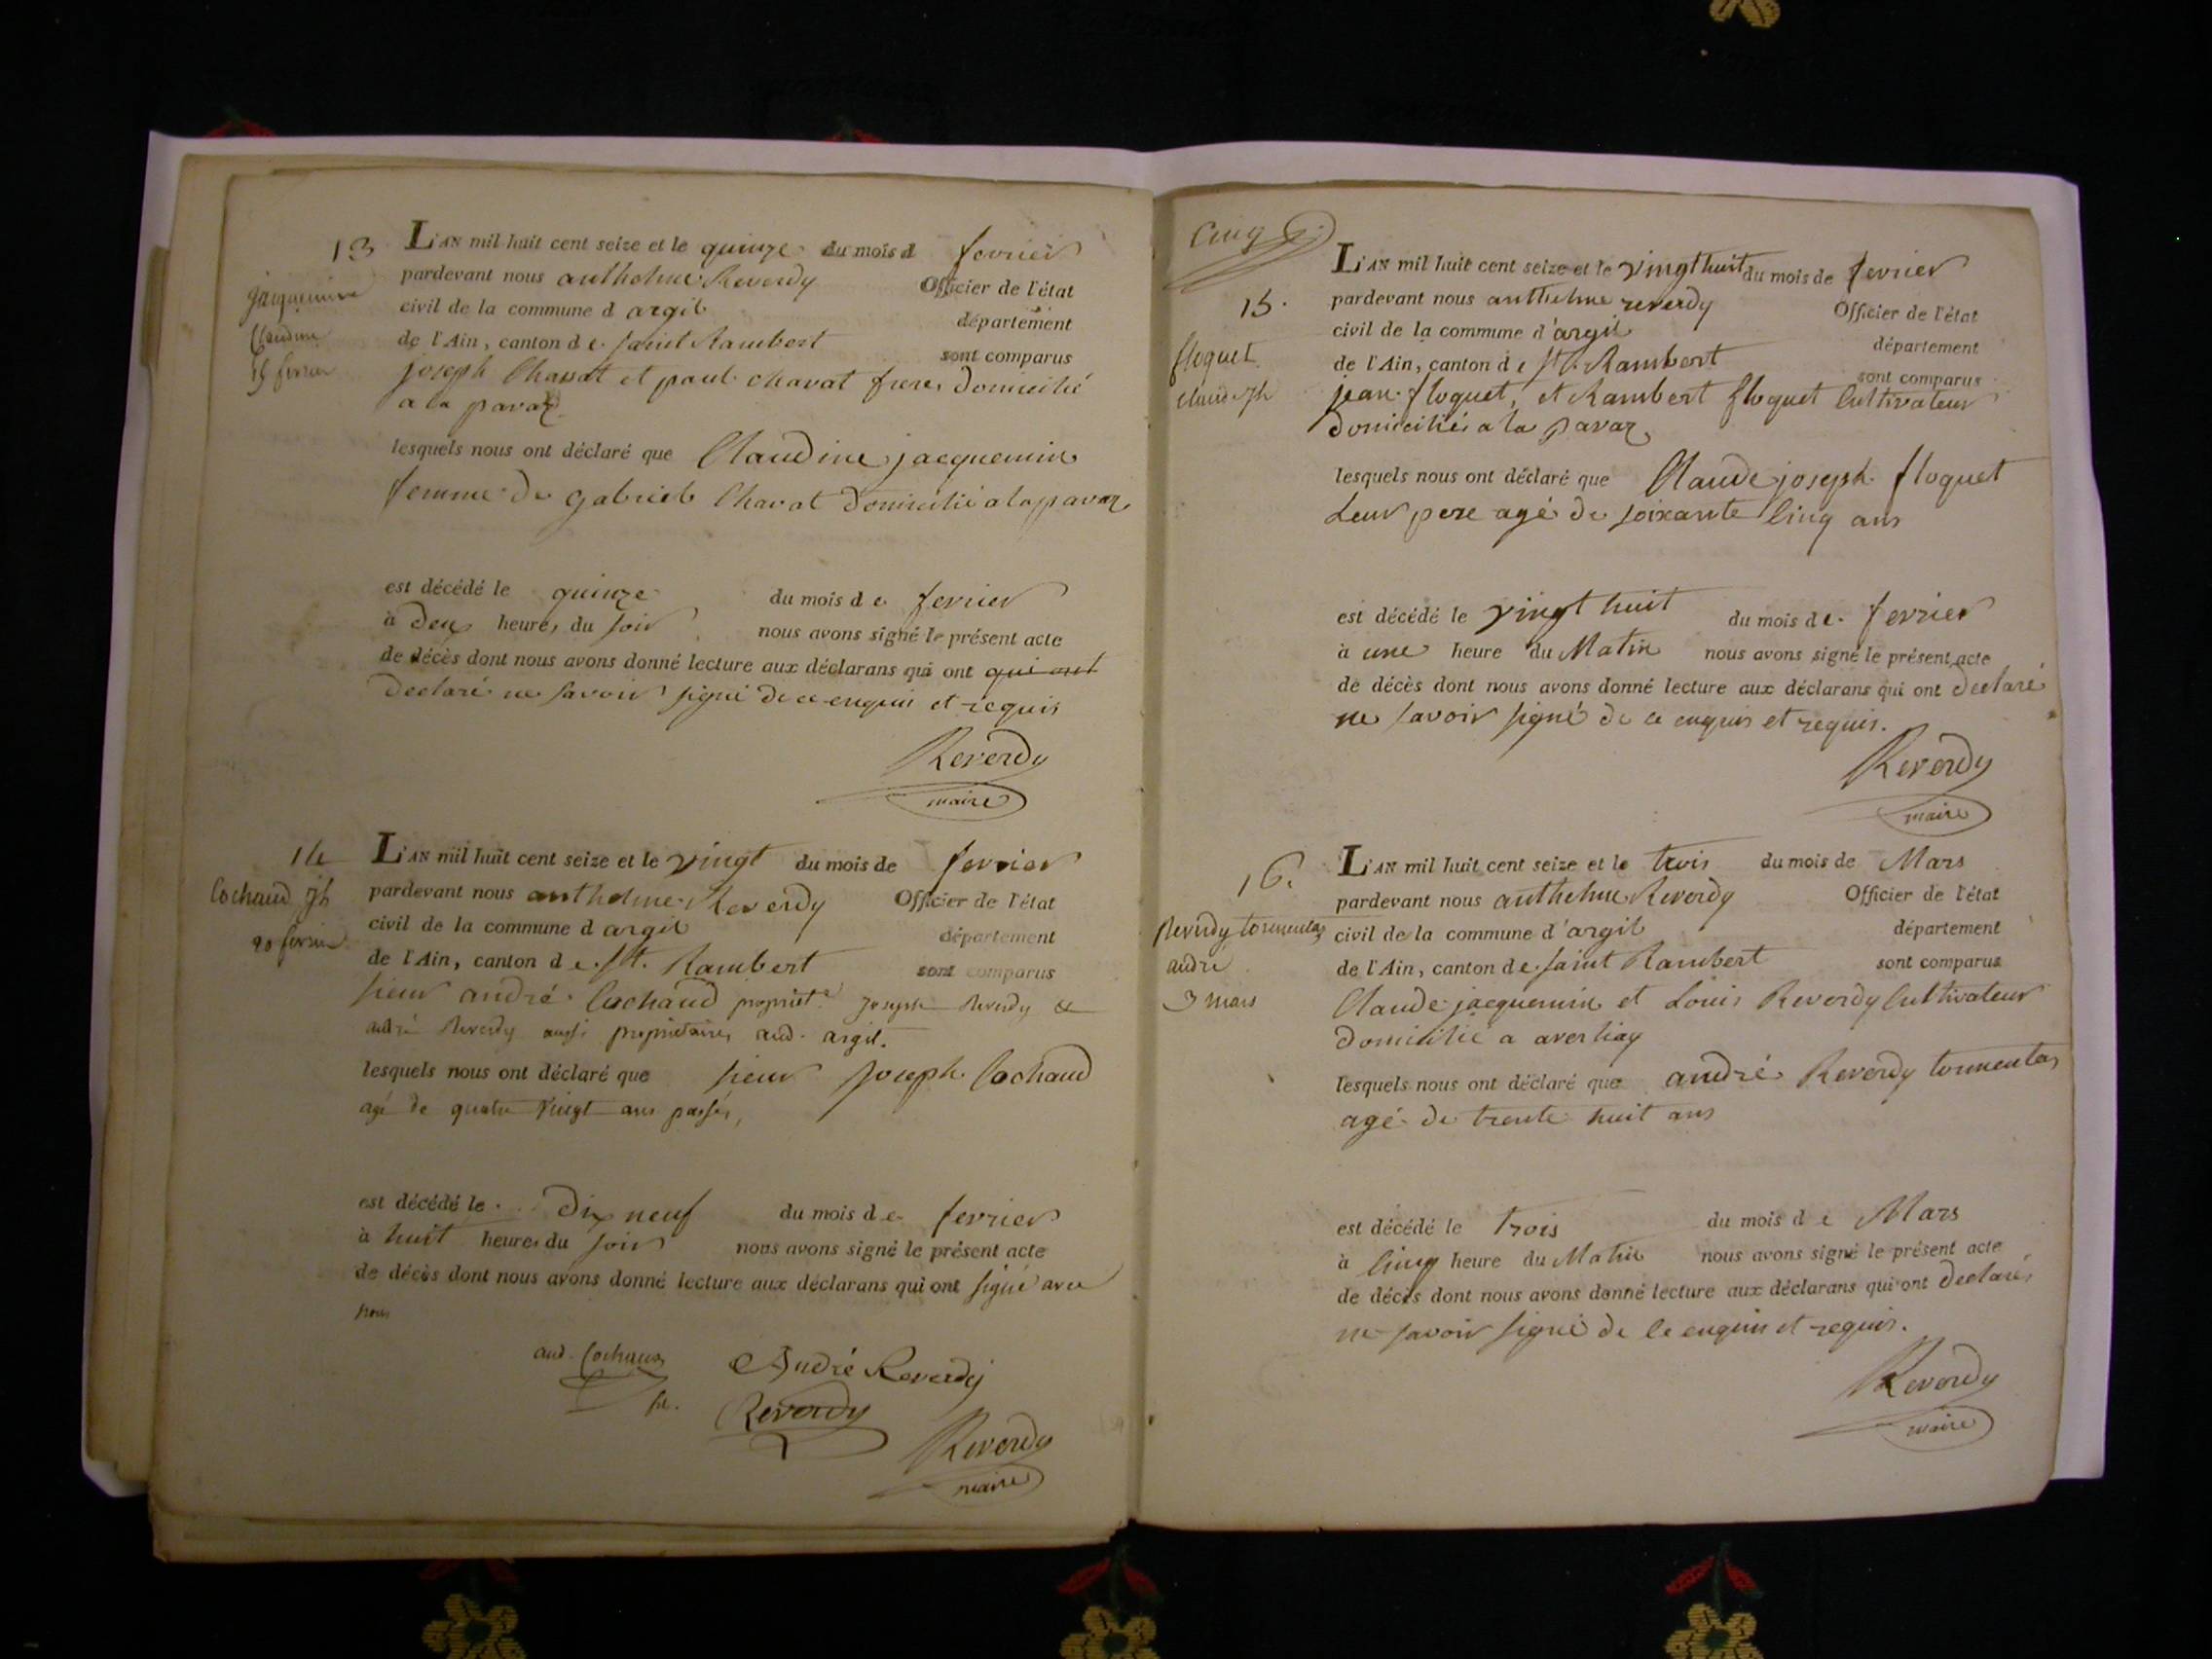 13
jacquemine
Claudine
15 fevrier
L'AN mil huit cent seize et le quinze du mois d fevrier
pardevant nous anthelme Reverdy Officier de l'état
civil de la commune d argil département
de l'Ain, canton de saint Rambert sont comparus
joseph Chavat et paul chavat freres Domicilié
a la pavaz
lesquels nous ont déclaré que Claudine jacquemin
femme de gabriel Chavat domicilié a la pavaz
est décédé le quinze du mois de fevrier
à deux heures du soir nous avons signé le présent acte
de décès dont nous avons donné lecture aux déclarans qui ont qui ont
declaré ne savoir signé de ce enquis et requis
Reverdy
maire
14
Cochaud jh
20 fevrier
L'AN mil huit cent seize et le vingt du mois de fevrier
pardevant nous anthelme Reverdy Officier de l'état
civil de la commune d argil département
de l'Ain, canton de St. Rambert sont comparus
sieur andré Cochaud propriét.e joseph Reverdy &
andré Reverdy aussi propriétaires aud. argil.
lesquels nous ont déclaré que sieur joseph Cochaud
agé de quatre vingt ans passés,
est décédé le dix neuf du mois de fevrier
à huit heures du soir nous avons signé le présent acte
de décès dont nous avons donné lecture aux déclarans qui ont signé avec
nous
and. Cochaud
André Reverdy
Reverdy
Reverdy
maire
Cinq
15.
floquet
claude jh
L'AN mil huit cent seize et le vingt huit du mois de fevrier
pardevant nous anthelme reverdy Officier de l'état
civil de la commune d'argil département
de l'Ain, canton de St. Rambert sont comparus
jean floquet, et Rambert floquet Cultivateur
domiciliés a la pavaz
lesquels nous ont déclaré que Claude joseph floquet
Leur pere agé de soixante cinq ans
est décédé le vingt huit du mois de fevrier
à une heure du Matin nous avons signé le présent acte
de décès dont nous avons donné lecture aux déclarans qui ont declaré
ne savoir signé de ce enquis et requis.
Reverdy
maire
16.
Reverdy tormentaz
andré
3 mars
L'AN mil huit cent seize et le trois du mois de Mars
pardevant nous anthelme Reverdy Officier de l'état
civil de la commune d'argil département
de l'Ain, canton de saint Rambert sont comparus
Claude jacquemin et Louis Reverdy Cultivateur
domicilié a averliaz
lesquels nous ont déclaré que andré Reverdy tormentaz
agé de trente huit ans
est décédé le trois du mois de Mars
à cinq heure du Matin nous avons signé le présent acte
de décès dont nous avons donné lecture aux déclarans qui ont declarés
ne savoir signé de ce enquis et requis.
Reverdy
maire